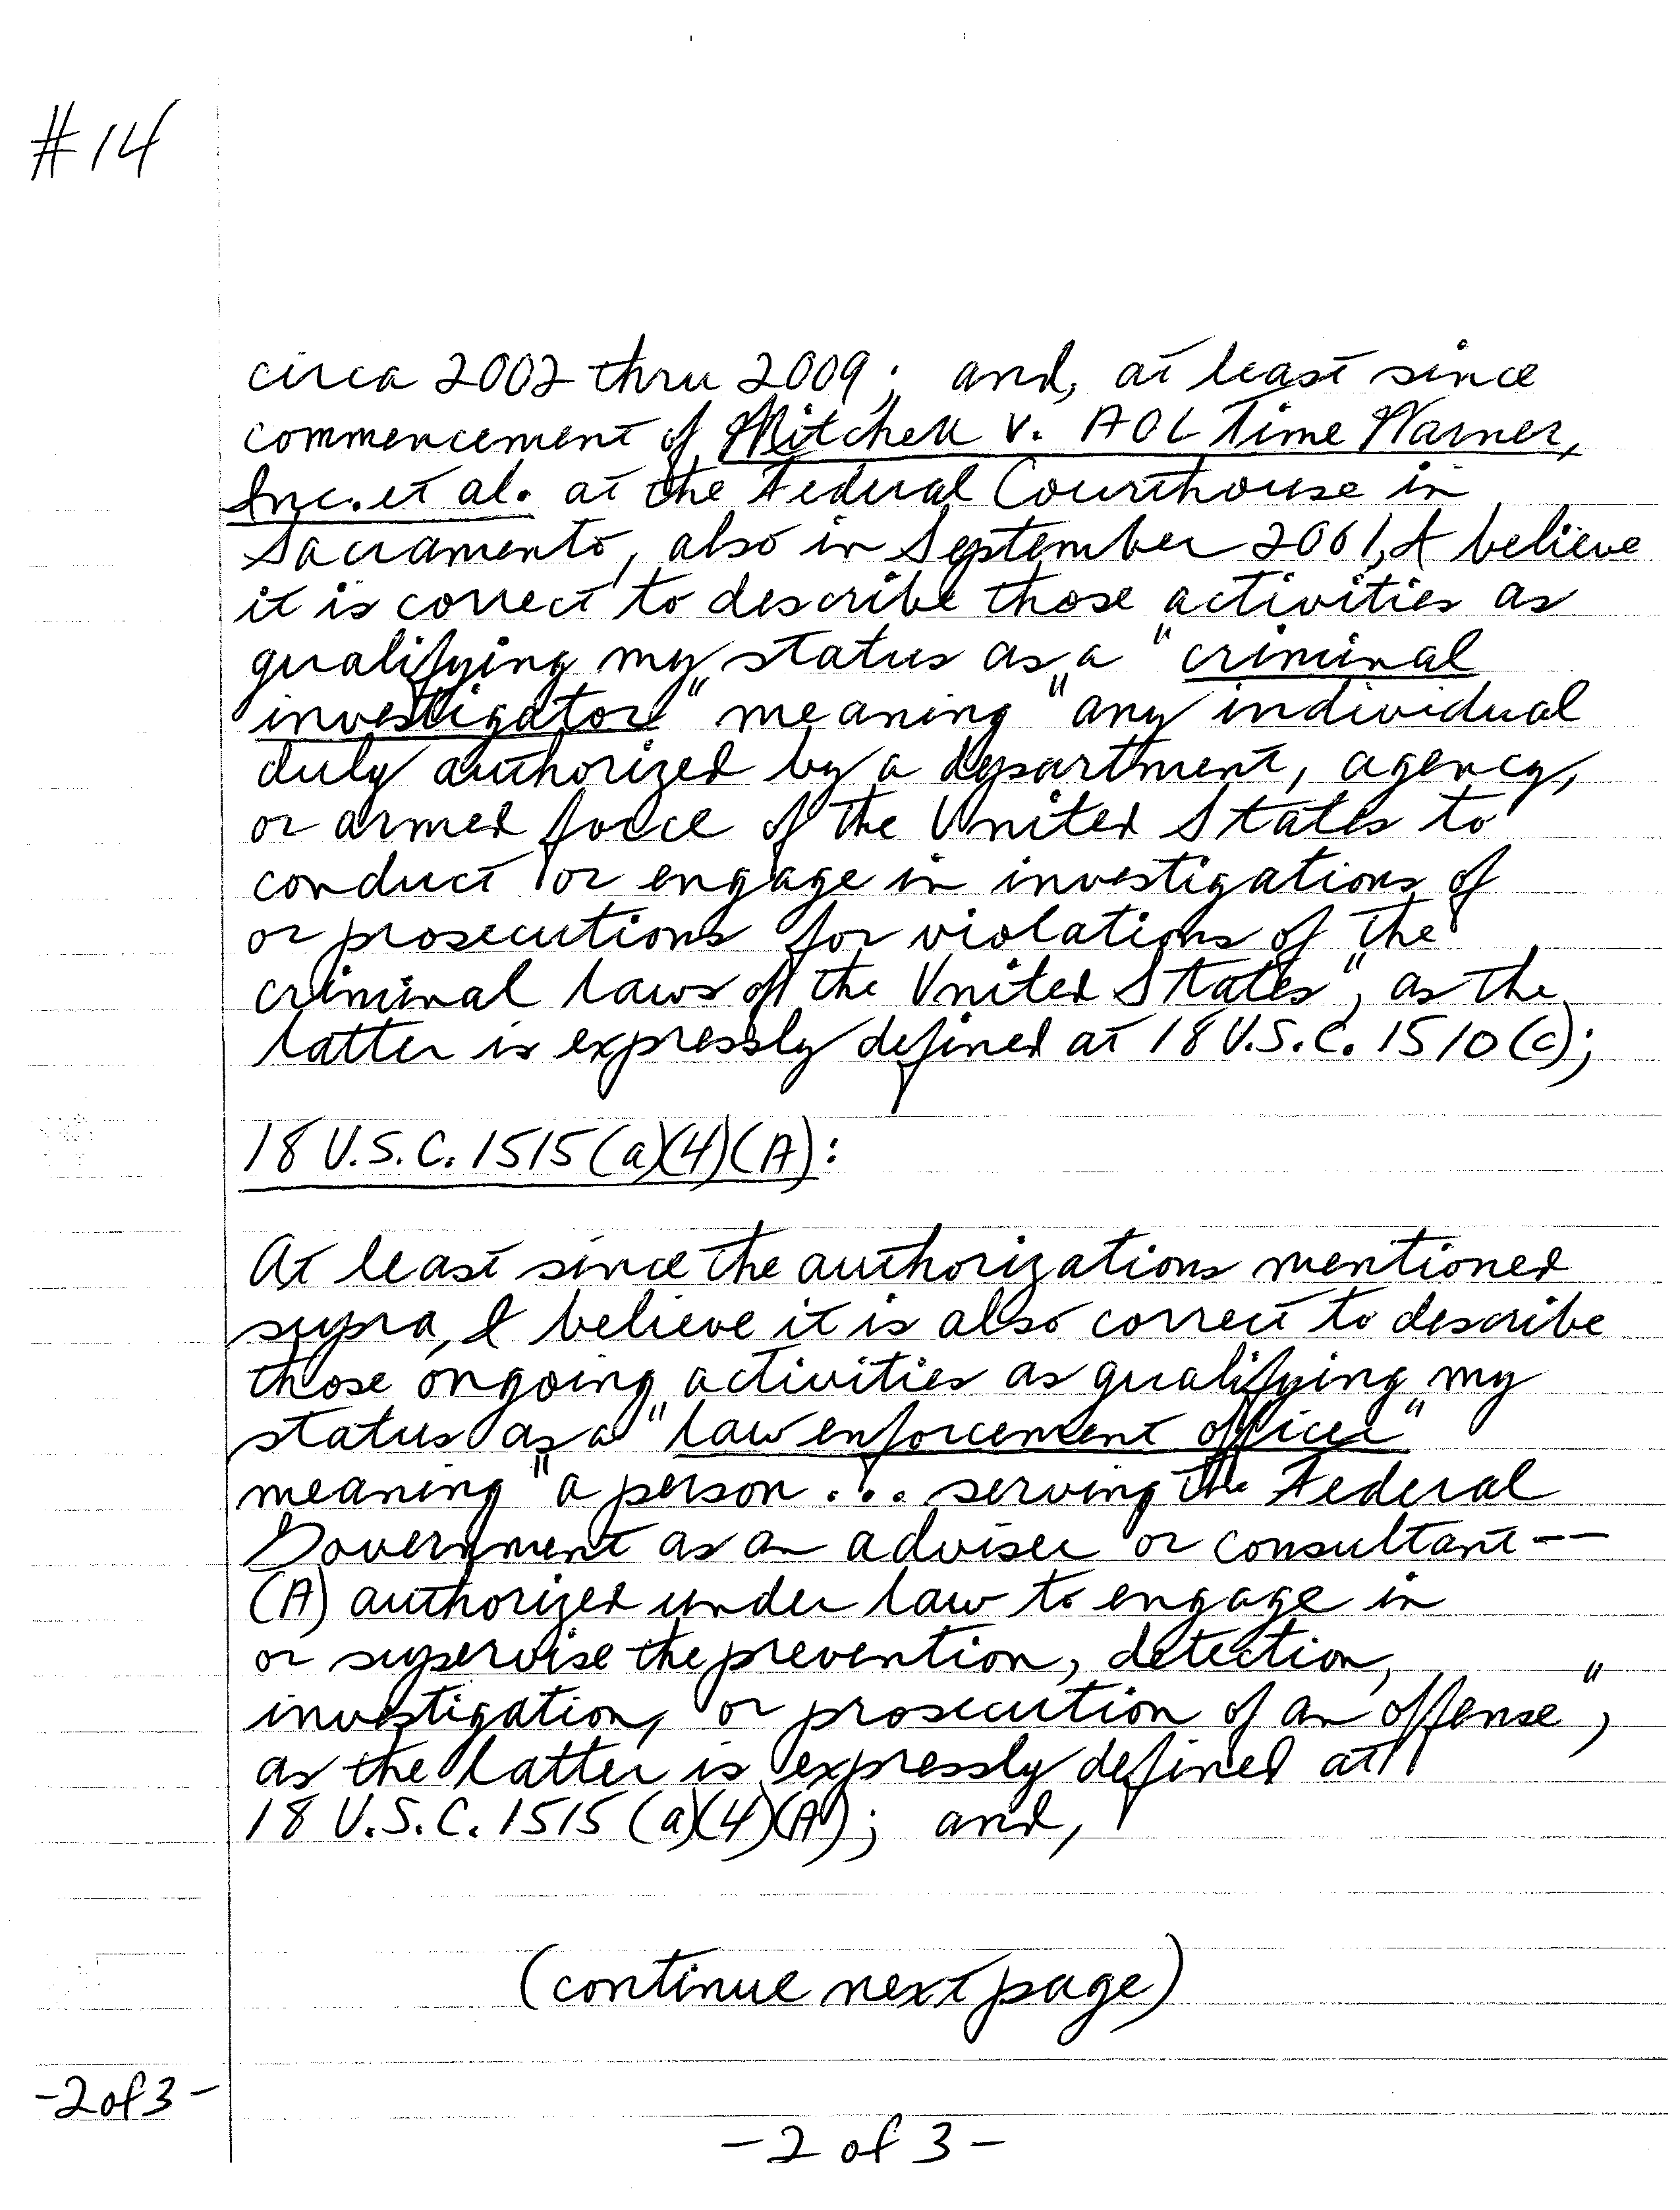 #14
circa 2002 thru 2009; and, at least since
commencement of Mitchell v. AOL Time Warner,
Inc. et al. at the Federal Courthouse in
Sacramento, also in September 2001, I believe
it is correct to describe those activities as
qualifying my status as a "criminal
investigator" meaning "any individual
duly authorized by a department, agency,
or armed force of the United States to
conduct or engage in investigations of
or prosecutions for violations of the
criminal laws of the United States", as the
latter is expressly defined at 18 U.S.C. 1510(c);
18 U.S.C. 1515(a)(4)(A):
At least since the authorizations mentioned
supra, I believe it is also correct to describe
those ongoing activities as qualifying my
status as a "law enforcement officer"
meaning "a person ... serving the Federal
Government as an adviser or consultant --
(A) authorized under law to engage in
or supervise the prevention, detection,
investigation, or prosecution of an offense",
as the latter is expressly defined at
18 U.S.C. 1515(a)(4)(A); and,
(continue next page)
-2 of 3-
-2 of 3-